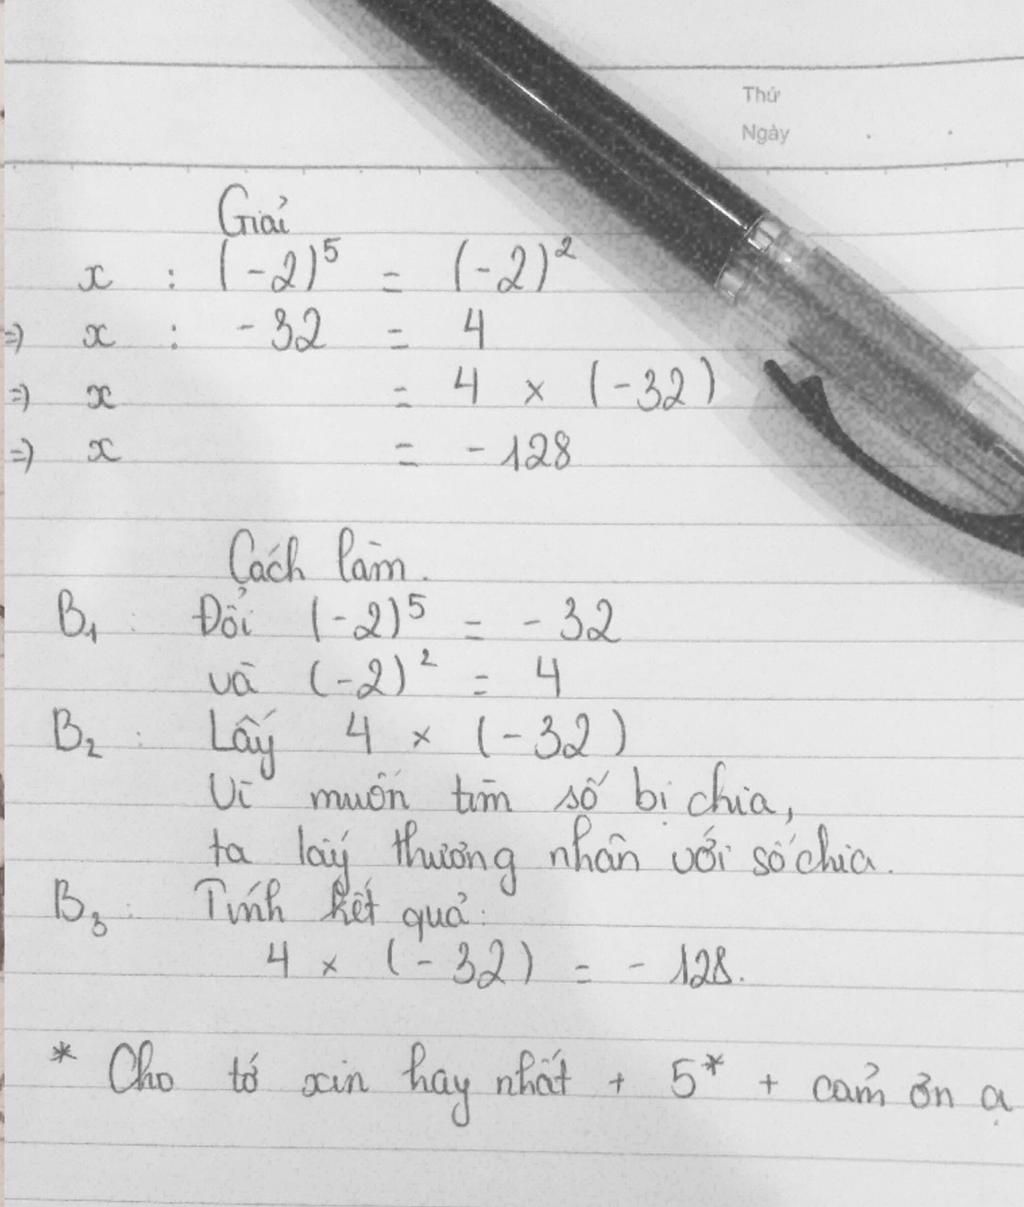 Thứ
Ngày
Giải
x : (-2)⁵ = (-2)²
=) x : -32 = 4
=) x = 4 x (-32)
=) x = -128
Cách làm.
B₁ : Đổi (-2)⁵ = -32
và (-2)² = 4
B₂ : Lấy 4 x (-32)
Vì muốn tìm số bị chia,
ta lấy thương nhân với số chia.
B₃ : Tính kết quả:
4 x (-32) = -128.
* Cho tớ xin hay nhất + 5* + cảm ơn ạ